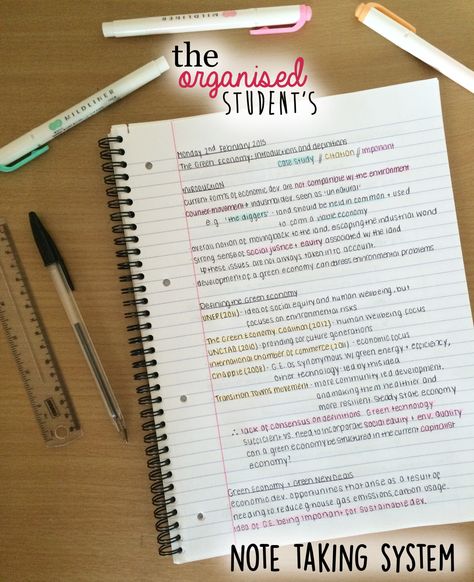 MILDLINER
the
organised
STUDENT'S
MILDLINER
Monday 2nd February 2015
The Green Economy: introductions and definitions
case study // citation // important
INTRODUCTION
current forms of economic dev. are not compatible w/ the environment
counter-movement + industrial dev. seen as 'un natural'
e.g. 'the diggers' - land should be held in common + used
to form a viable economy
overall notion of moving back to the land, escaping the industrial world
strong sense of social justice + equity associated w/ the land
↳ these issues are not always taken in to account.
development of a green economy can address environmental problems
Defining the Green Economy
UNEP (2011) - idea of social equity and human wellbeing, but
focuses on environmental risks
The Green Economy Coalition (2012) - human wellbeing focus
UNCTAD (2010) - providing for future generations
International chamber of commerce (2011) - economic focus
CHAPPLE (2008) - G.E. as synonymous w/ green energy + efficiency,
other technology led by this idea
Transition Towns movement - more community led development,
and making them healthier and
more resilient. Steady state economy
∴ lack of consensus on definitions. Green technology
sufficient vs. need to incorporate social equity + env. quality
can a green economy be structured in the current capitalist
economy?
Green Economy + Green New Deals
economic dev. opportunities that arise as a result of
needing to reduce g'house gas emissions, carbon usage.
idea of G.E. being important for sustainable dev.
NOTE TAKING SYSTEM